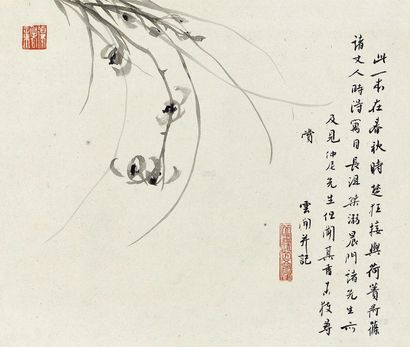 此一本在春秋時楚狂接輿荷蕢荷蓧
諸丈人時得寓目長沮桀溺晨門諸先生亦
及見仲尼先生但聞其香未敢尋
賞
雲閒并記